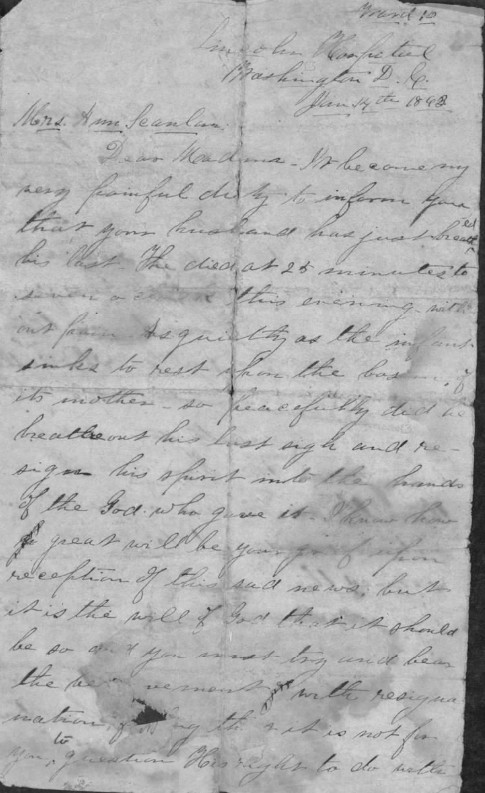 Ward 10
Lincoln Hospital
Washington D. C.
Jan 14th 1863
Mrs. Ann Scanlan.
Dear Madam - It become my
very painful duty to inform you
that your husband has just breathed
his last. He died at 25 minutes to
seven o clock this evening with
out pain As quietly as the infant
sinks to rest upon the bosom of
its mother - so peacefully did he
breathe out his last sigh and re-
sign his spirit into the hands
of the God who gave it. I know how
great will be your grief upon
reception of this sad news; but
it is the will of God that it should
be so and you must try and bear
the with resigna
nation, it is not for
you to question His right to do with